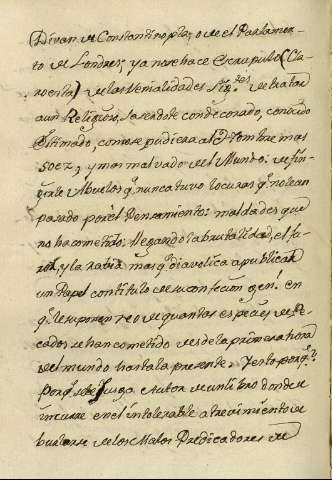 Divan de Constantinopla, o de el Parlamen-
to de Londres; ya no se hace escrupulo (Cla-
ro està) de las Venialidades de tratar
a un Religioso, Sacerdote condecorado, conocido
estimado, como se pudiera al Hombre mas
soez, y mas malvado del Mundo: de fin-
girle Abuelos q. nunca tuvo locuras q. no le an
pasado por el Pensamiento: maldades que
no ha cometido: llegando la brutalidad, el fu-
ror, y la rabia mas q. diavolica a publicar
un Papel con titulo de su confesion gen.l en
q. le suponen reo de quantas especies de Pe-
cados se han cometido desde la primera hora
del mundo hasta la presente. Y esto porq.?
porq. se Juzga Autor de un libro donde
incurre en el intolerable atrevimiento de
burlarse de los Malos Predicadores de